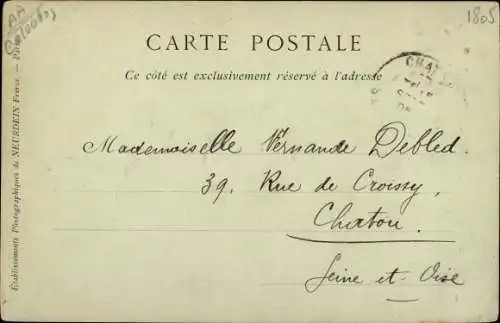 1805
AA
CARTE POSTALE
Ce côté est exclusivement réservé à l'adresse
CHAT
Mademoiselle Vernande Debled.
39, Rue de Croissy,
Chatou.
Seine et Oise
Établissements Photographiques de NEURDEIN Frères. — Paris